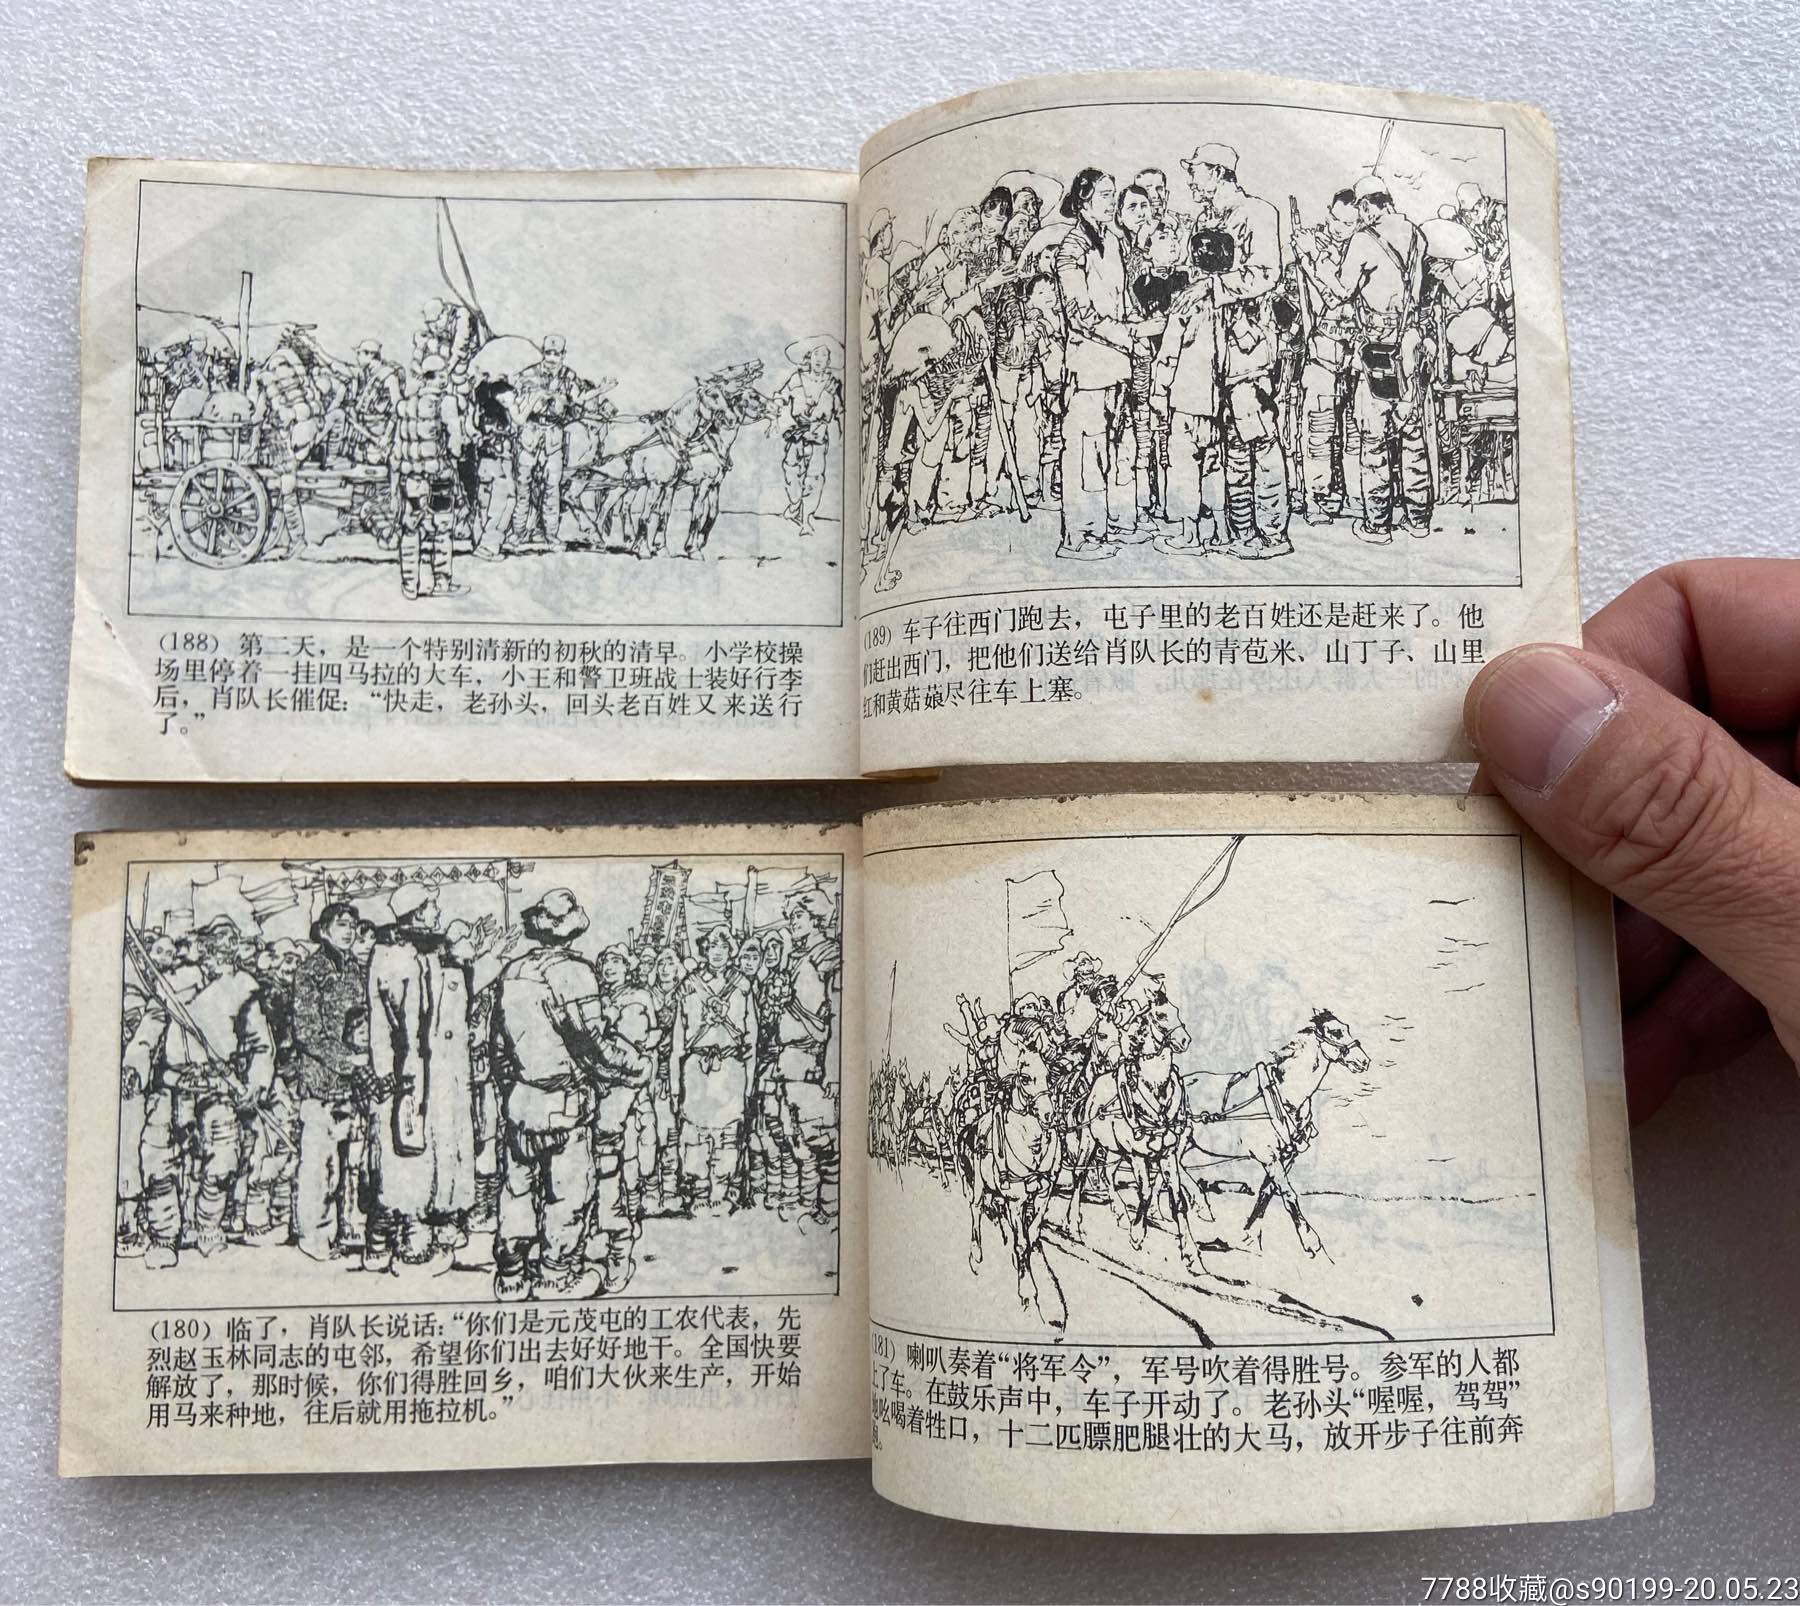 (188) 第二天，是一个特别清新的初秋的清早。小学校操
场里停着一挂四马拉的大车，小王和警卫班战士装好行李
后，肖队长催促：“快走，老孙头，回头老百姓又来送行
了。”
(189) 车子往西门跑去，屯子里的老百姓还是赶来了。他
们赶出西门，把他们送给肖队长的青苞米、山丁子、山里
红和黄菇蒗尽往车上塞。
(180) 临了，肖队长说话：“你们是元茂屯的工农代表，先
烈赵玉林同志的屯邻，希望你们出去好好地干。全国快要
解放了，那时候，你们得胜回乡，咱们大伙来生产，开始
用马来种地，往后就用拖拉机。”
(181) 喇叭奏着“将军令”，军号吹着得胜号。参军的人都
上了车。在鼓乐声中，车子开动了。老孙头“喔喔，驾驾”
地吆喝着牲口，十二匹膘肥腿壮的大马，放开步子往前奔
跑。
7788收藏@s90199-20.05.23